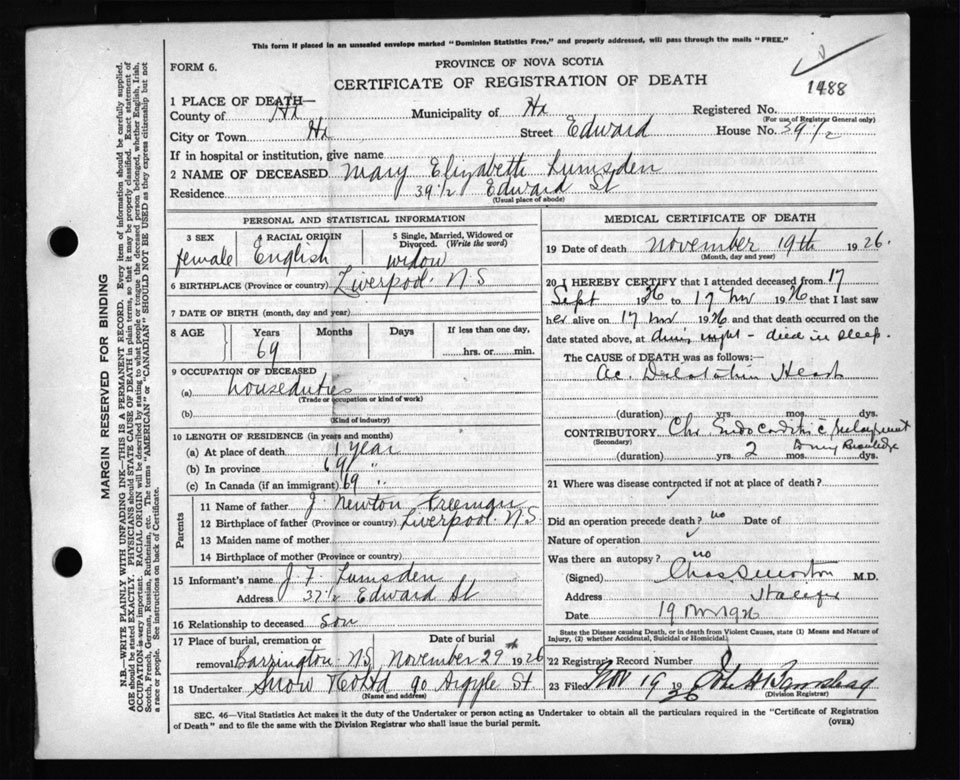 This form if placed in an unsealed envelope marked "Dominion Statistics Free," and properly addressed, will pass through the mails "FREE."
1488
FORM 6.
PROVINCE OF NOVA SCOTIA
CERTIFICATE OF REGISTRATION OF DEATH
1 PLACE OF DEATH—
County of Hx Municipality of Hx Registered No.
(For use of Registrar General only)
City or Town Hx Street Edward House No. 39 1/2
If in hospital or institution, give name
2 NAME OF DECEASED Mary Elizabeth Lumsden
Residence 39 1/2 Edward St
(Usual place of abode)
PERSONAL AND STATISTICAL INFORMATION
3 SEX female
4 RACIAL ORIGIN English
5 Single, Married, Widowed or Divorced. (Write the word) widow
6 BIRTHPLACE (Province or country) Liverpool N S
7 DATE OF BIRTH (month, day and year)
8 AGE Years Months Days If less than one day,
69 hrs. or min.
9 OCCUPATION OF DECEASED
(a) house duties
(Trade or occupation or kind of work)
(b)
(Kind of industry)
10 LENGTH OF RESIDENCE (in years and months)
(a) At place of death 1 year
(b) In province 69 "
(c) In Canada (if an immigrant) 69 "
Parents
11 Name of father J. Newton Freeman
12 Birthplace of father (Province or country) Liverpool N.S
13 Maiden name of mother
14 Birthplace of mother (Province or country)
15 Informant's name J F Lumsden
Address 37 1/2 Edward St
16 Relationship to deceased son
17 Place of burial, cremation or removal Barrington NS
Date of burial November 29th 1926
18 Undertaker Snow & Co Ltd 90 Argyle St
(Name and address)
MEDICAL CERTIFICATE OF DEATH
19 Date of death November 19th 1926.
(Month, day and year)
20 I HEREBY CERTIFY that I attended deceased from 17
Sept 1926 to 17 Nov 1926 that I last saw
her alive on 17 Nov 1926 and that death occurred on
date stated above, at during night - died in sleep.
The CAUSE OF DEATH was as follows:
Ac. Dilatation Heart
(duration) yrs. mos. dys.
CONTRIBUTORY Chr Endocarditis
(Secondary)
(duration) yrs. 2 mos. dys.
21 Where was disease contracted if not at place of death?
Did an operation precede death? no Date of
Nature of operation
Was there an autopsy? no
(Signed) Chas S Morton M.D.
Address Halifax
Date 19 Nov 1926
State the Disease causing Death, or in death from Violent Causes, state (1) Means and Nature of Injury, (2) whether Accidental, Suicidal or Homicidal.
22 Registrar's Record Number
23 Filed Nov 19 1926 John H
(Division Registrar)
SEC. 46—Vital Statistics Act makes it the duty of the Undertaker or person acting as Undertaker to obtain all the particulars required in the "Certificate of Registration
of Death" and to file the same with the Division Registrar who shall issue the burial permit.
(OVER)
MARGIN RESERVED FOR BINDING
N.B.—WRITE PLAINLY WITH UNFADING INK—THIS IS A PERMANENT RECORD. Every item of information should be carefully supplied.
AGE should be stated EXACTLY. PHYSICIANS should STATE CAUSE OF DEATH in plain terms, so that it may be properly classified. Exact statement of
OCCUPATION is very important. RACIAL ORIGIN will be described by stating to what people or tongue the deceased person belonged, whether English, Irish,
Scotch, French, German, Russian, Ruthenian, etc. The terms "AMERICAN" or "CANADIAN" SHOULD NOT BE USED as they express citizenship but not
a race or people. See instructions on back of Certificate.